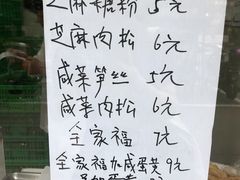 芝麻糖粉 5元
芝麻肉松 6元
咸菜笋丝 5元
咸菜肉松 6元
全家福 7元
全家福加咸蛋黄 9元